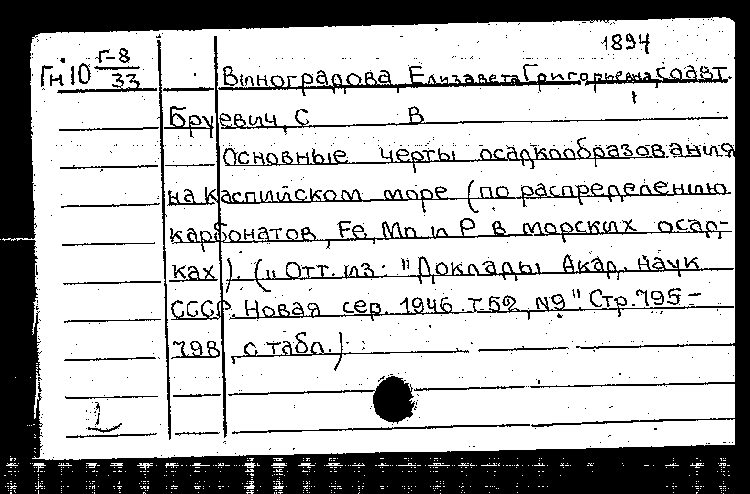 1894
Гн 10 Г-8/33
Виноградова, Елизавета Григорьевна, соавт.
Бруевич, С В
Основные черты осадкообразования
на Каспийском море (по распределению
карбонатов, Fe, Mn и P в морских осад-
ках). („Отт. из: "Доклады Акад. наук
СССР. Новая сер. 1946 т.52, №9". Стр.795-
798, с табл.)